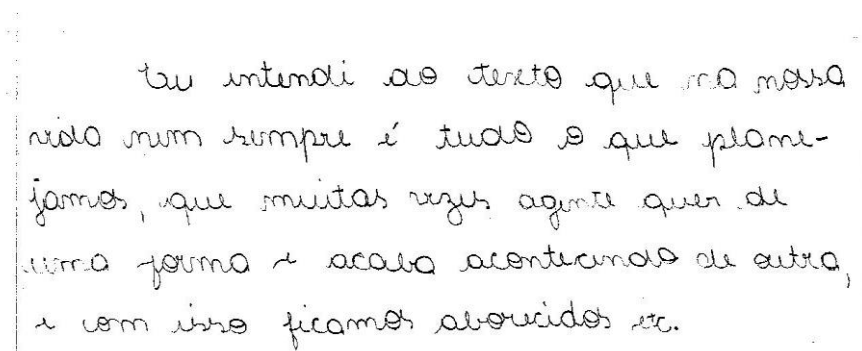 Eu intendi ao texto que na nossa
vida nem sempre é tudo o que plane-
jamos, que muitas vezes agente quer de
uma forma e acaba acontecendo de outra,
e com isso ficamos aborecidos etc.